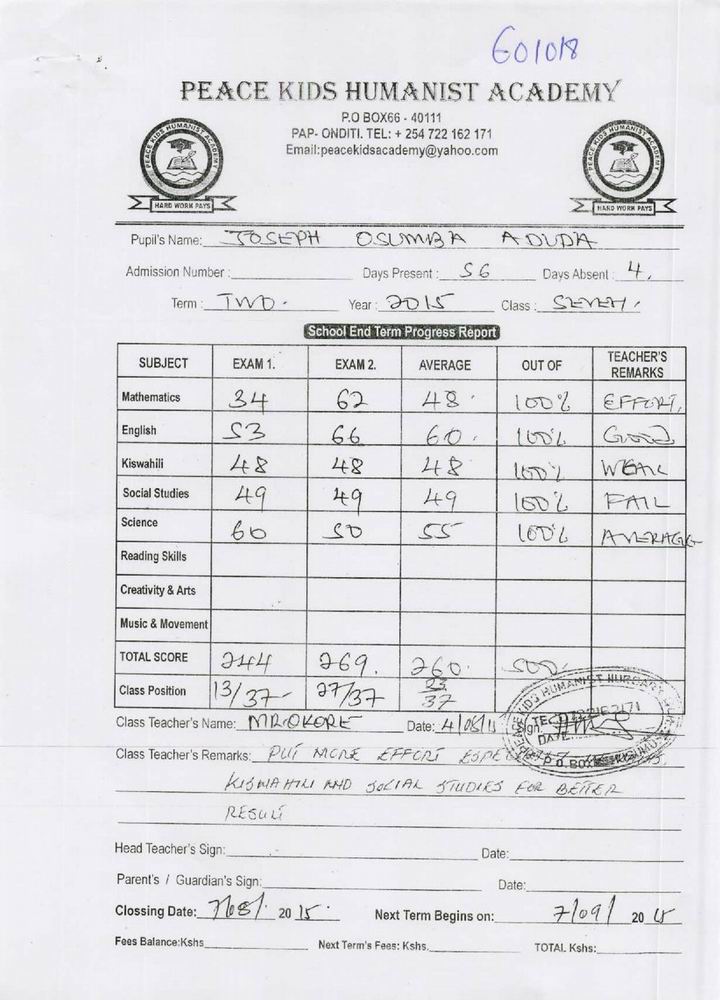 601018
PEACE KIDS HUMANIST ACADEMY
P.O BOX66 - 40111
PAP- ONDITI. TEL: + 254 722 162 171
Email:peacekidsacademy@yahoo.com
PEACE KIDS HUMANIST ACADEMY
HARD WORK PAYS
PEACE KIDS HUMANIST ACADEMY
HARD WORK PAYS
Pupil's Name: JOSEPH OSUMBA ADUDA
Admission Number : Days Present : 56 Days Absent : 4.
Term : TWO. Year : 2015 Class : SEVEN.
School End Term Progress Report
SUBJECT EXAM 1. EXAM 2. AVERAGE OUT OF TEACHER'S REMARKS
Mathematics 34 62 48. 100% EFFORT.
English 53 66 60. 100% GOOD
Kiswahili 48 48 48 100% WEAK
Social Studies 49 49 49 100% FAIL
Science 60 50 55 100% AVERAGE
Reading Skills
Creativity & Arts
Music & Movement
TOTAL SCORE 244 269. 260. 500.
Class Position 13/37 27/37 23/37
Class Teacher's Name: MR.OKORE Date: 4/08/ Sign:
KIDS HUMANIST NURSARY
DATE
P.O. BOX
Class Teacher's Remarks: PUT MORE EFFORT
KISWAHILI AND SOCIAL STUDIES FOR BETTER
RESULT
Head Teacher's Sign: Date:
Parent's / Guardian's Sign: Date:
Clossing Date: 7/08/ 2015. Next Term Begins on: 7/09/ 2015
Fees Balance:Kshs Next Term's Fees: Kshs. TOTAL Kshs: